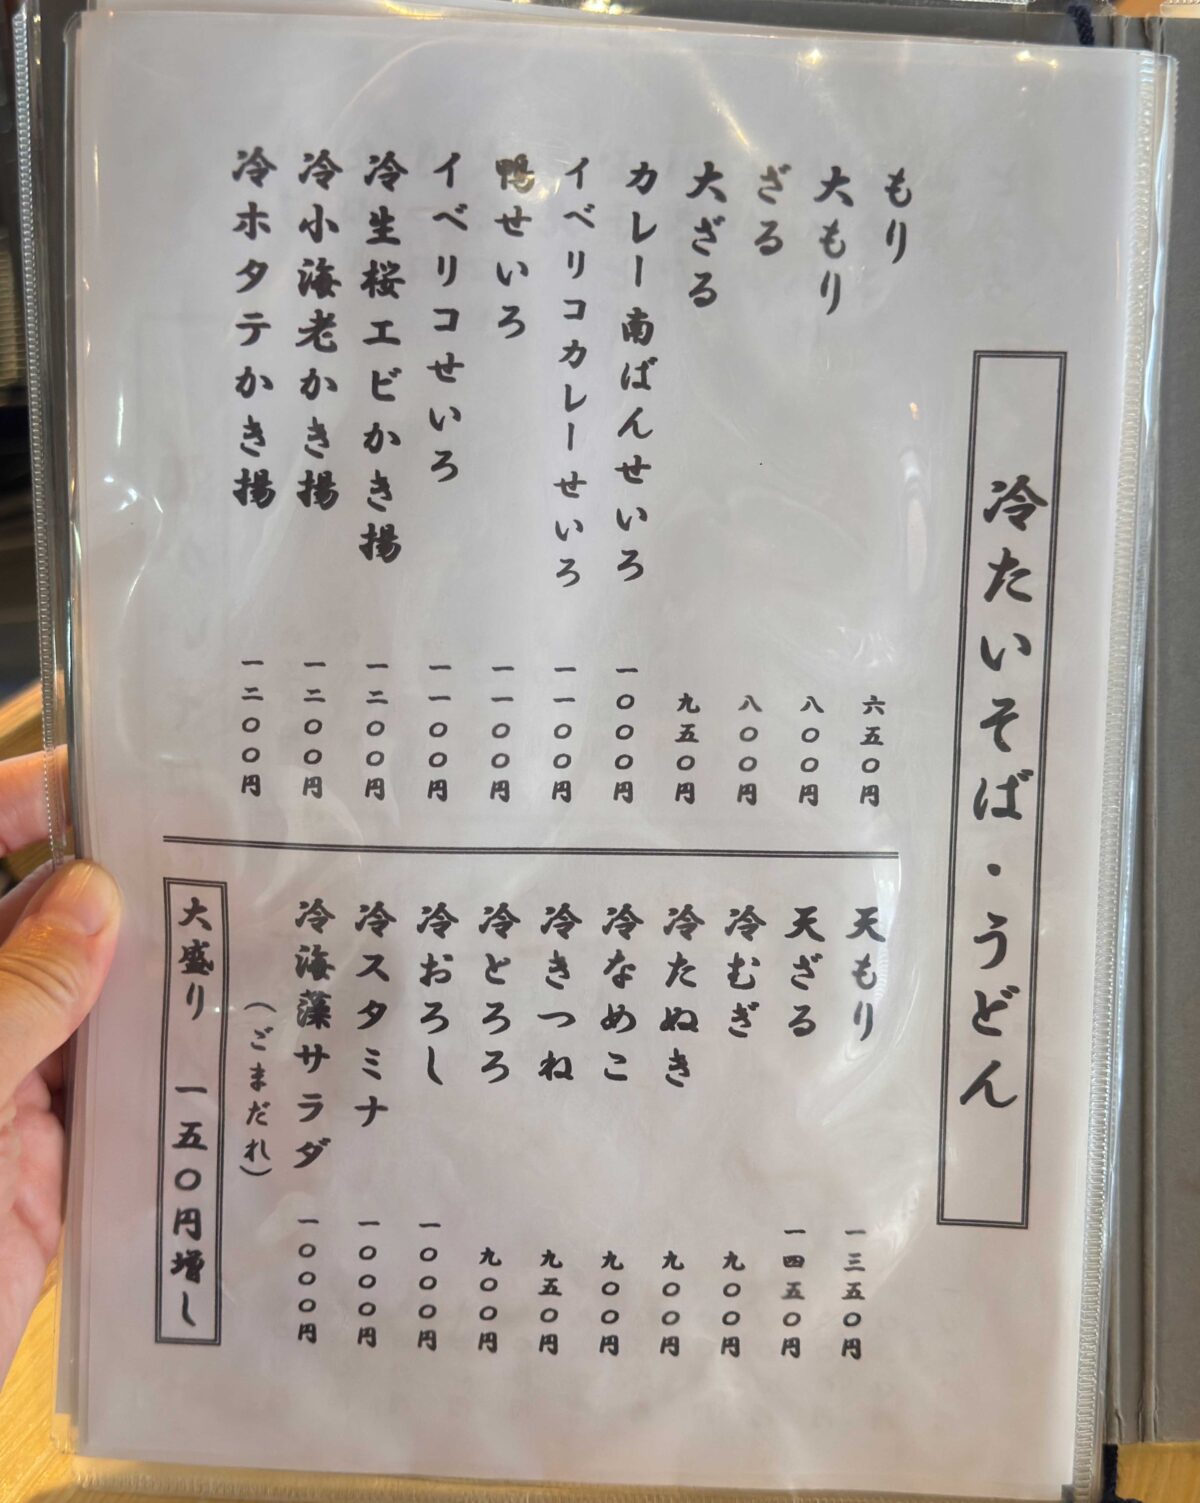 冷たいそば・うどん
もり 六五〇円
大もり 八〇〇円
ざる 八〇〇円
大ざる 九五〇円
カレー南ばんせいろ 一〇〇〇円
イベリコカレーせいろ 一一〇〇円
鴨せいろ 一一〇〇円
イベリコせいろ 一一〇〇円
冷生桜エビかき揚 一二〇〇円
冷小海老かき揚 一二〇〇円
冷ホタテかき揚 一二〇〇円
天もり 一三五〇円
天ざる 一四五〇円
冷むぎ 九〇〇円
冷たぬき 九〇〇円
冷なめこ 九〇〇円
冷きつね 九五〇円
冷とろろ 九〇〇円
冷おろし 一〇〇〇円
冷スタミナ 一〇〇〇円
冷海藻サラダ 一〇〇〇円
（ごまだれ）
大盛り 一五〇円増し